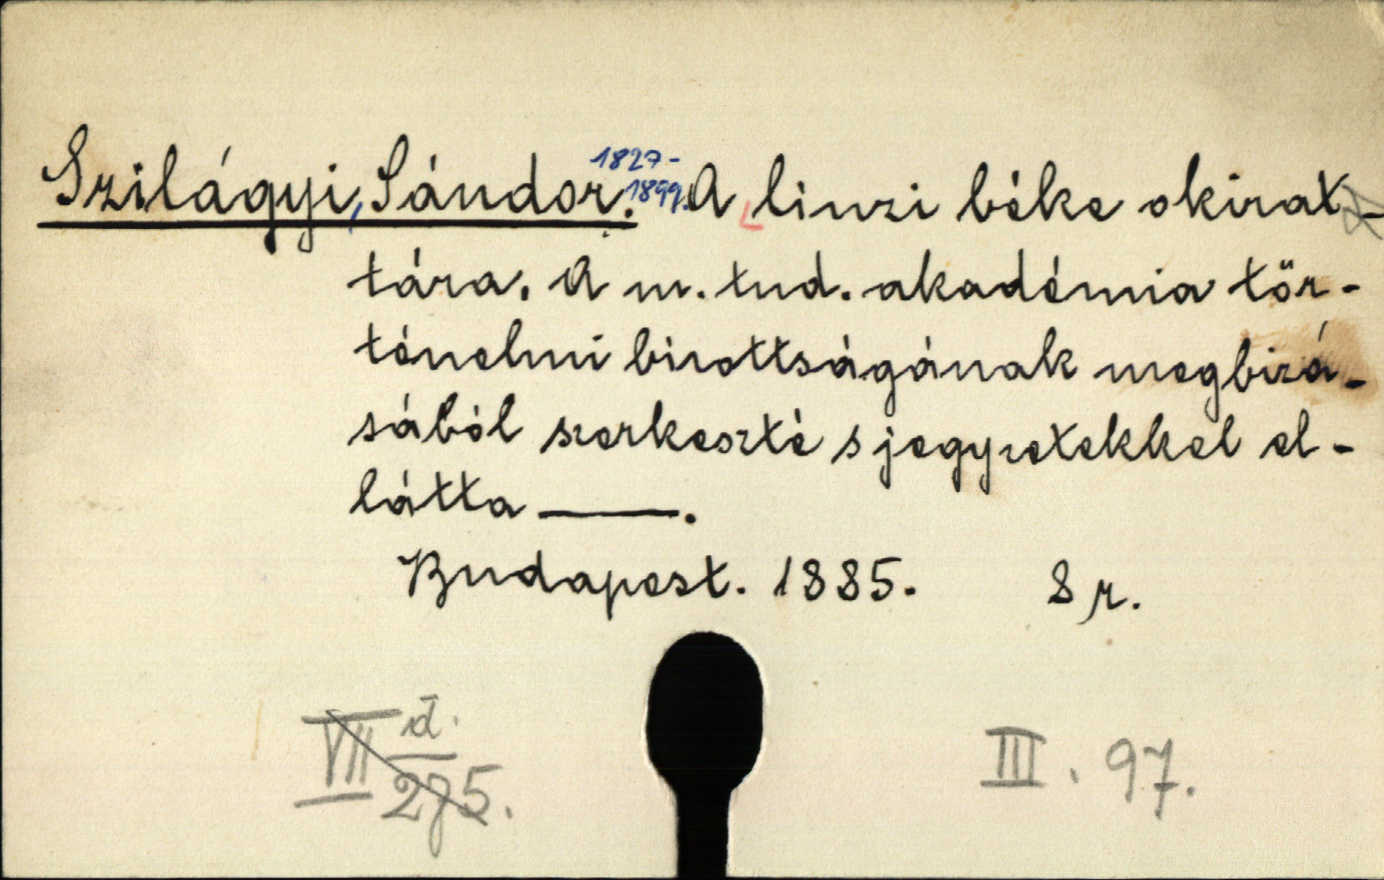 Szilágyi, Sándor. 1827-1899. A linzi béke okirat-
tára. A m. tud. akadémia tör-
ténelmi bizottságának megbizá-
sából szerkeszté s jegyzetekkel el-
látta ———.
Budapest. 1885. 8 r.
VII d. 275. III. 97.